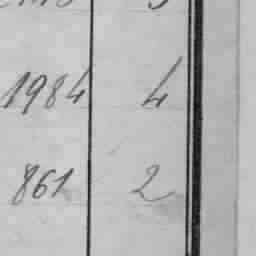 1984 4
861 2